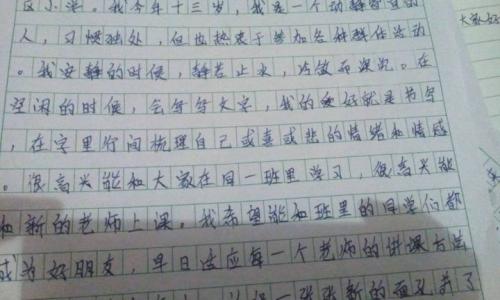 区小学。我今年十三岁，我是一个动静皆宜的
人，习惯独处，但也热衷于参加各种集体活动
。我安静的时候，静若止水，冷傲而深沉。在
空闲的时候，会写写文字，我的爱好就是书写
，在字里行间梳理自己或喜或悲的情绪和情感
。很高兴能和大家在同一班里学习，很高兴能
和新的老师上课。我希望能和班里的同学们都
成为好朋友，早日适应每一个老师的讲课方法
一张张新的面孔并了
大家好